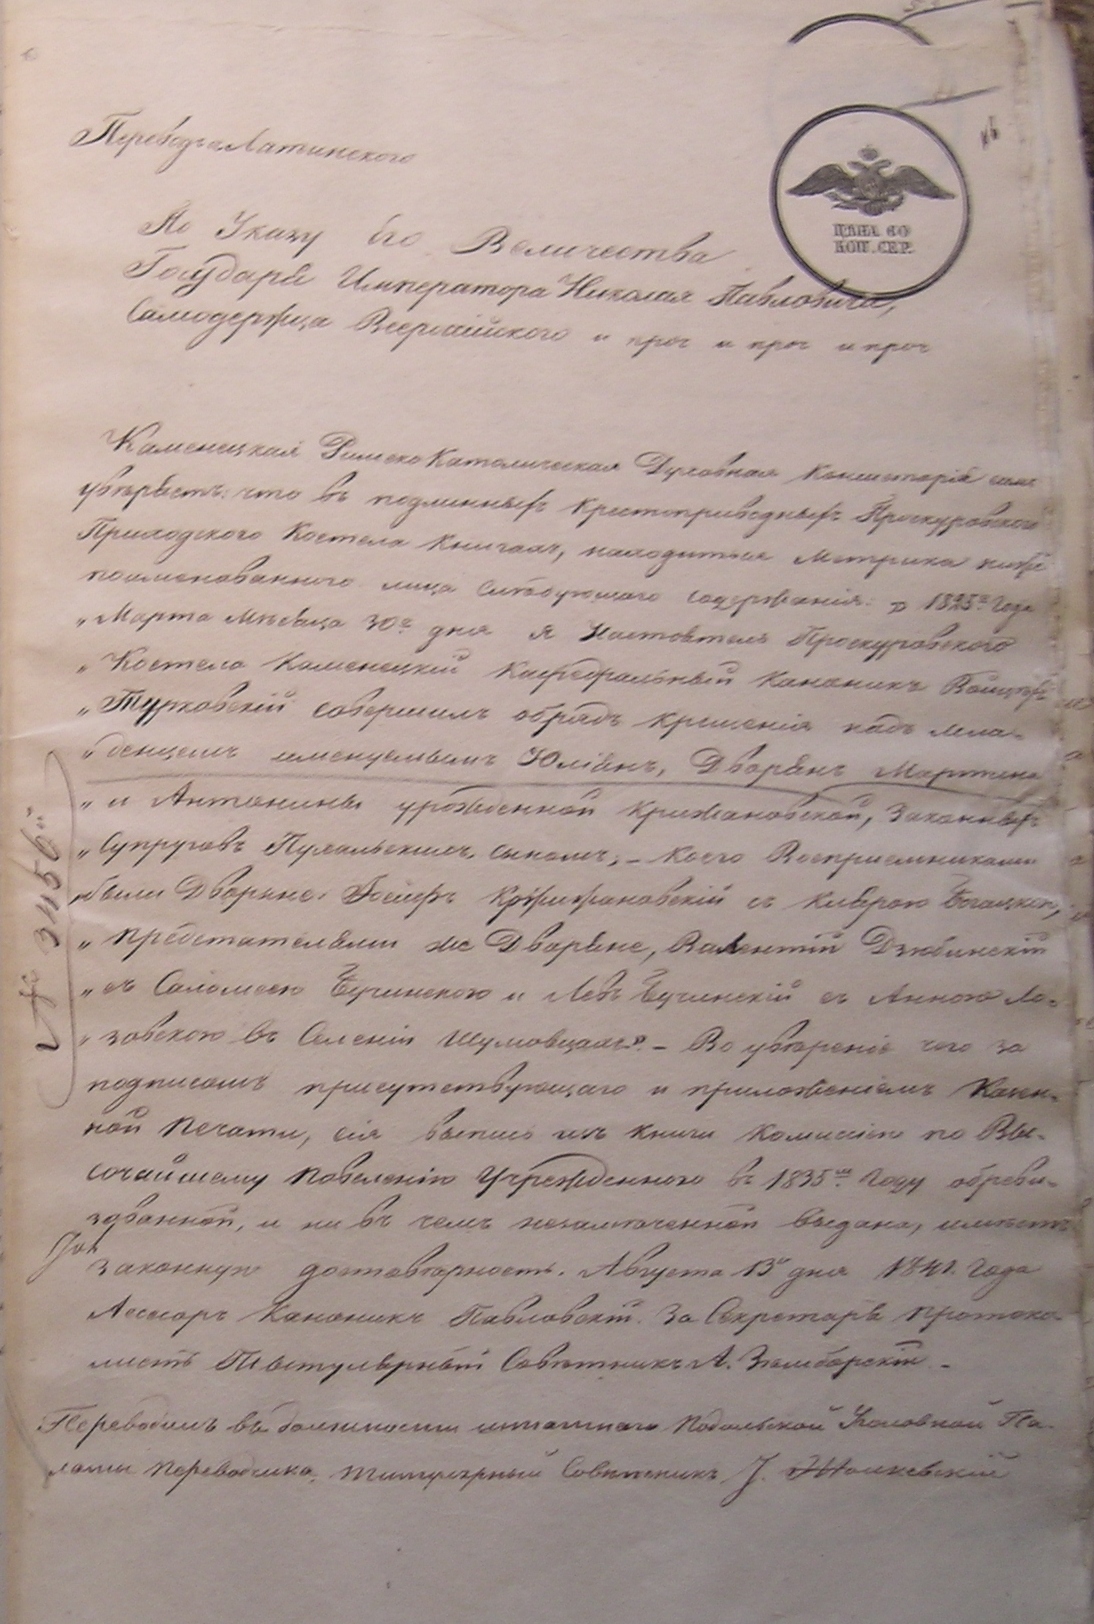 Переводъ съ Латинского
ЦѢНА 60
КОП. СЕР.
По Указу Его Величества
Государя Императора Николая Павловича,
Самодержца Всероссійского и проч и проч и проч
Каменецкая Римско Католическая Духовная Консисторія симъ
увѣряетъ: что въ подлинныхъ крестоприводныхъ Проскуровского
Приходского Костела книгахъ, находится Метрика ниже
поименованного лица слѣдующаго содержанія: 1825го Года
„Марта Мѣсяца 30го дня я Настоятель Проскуровского
„Костела Каменецкій Кафедральный Каноникъ Войцехъ
„Турковскій совершилъ обрядъ крещенія надъ мла-
„денцемъ именуемымъ Юліянъ, Дворянъ Мартина
„и Антонины урожденной Крижановской, законныхъ
„Супруговъ Пулальскихъ сыномъ, – коего Воспріемниками
„были Дворяне: Іосифъ Крижановскій съ
„предстателями же Дворяне, Валентій Дзюбинскій
„съ Саломеею Бучинскою и Левъ Бучинскій съ Анною Ло-
„зовскою въ Селеніи Шумовцахъ". – Во увѣреніе чего за
подписомъ присутствующаго и приложеніемъ Казен-
ной Печати, сія выпись изъ книги Комиссіею по Вы-
сочайшему повеленію Учрежденною въ 1835мъ Году обреви-
зованной, и ни въ чемъ незамѣченной выдана, имѣетъ
законную достовѣрность. Августа 13го дня 1841 Года
Асессоръ Каноникъ Павловскій. За Секретаря Протоко-
листъ Титулярный Совѣтникъ А.
Переводилъ въ должности штатнаго Подольской Уголовной Па-
латы переводчика, титулярный Совѣтникъ
№ 3456й